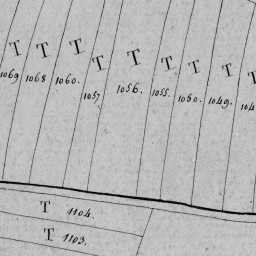 T T T T T T T T
1069 1068 1060. 1057 1056. 1055. 1060. 1049.
T 1104.
T 1103.